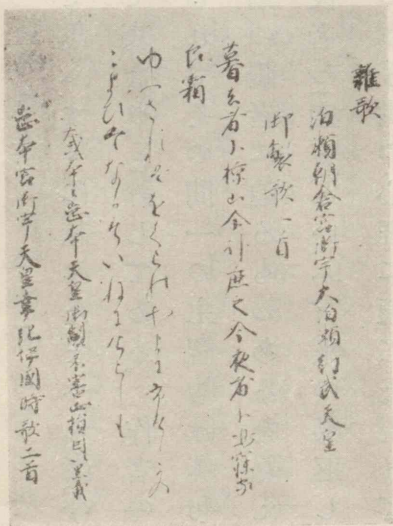 雜歌
泊瀬朝倉宮御宇大泊瀬幼武天皇
御製歌一首
暮去者小椋山今臥鹿之今夜者不鳴寐家
良霜
ゆふされはをくらのやまにふすしかの
こよひはなかすいねにけらしも
或本云崗本天皇御製不審正指因以累載
崗本宮御宇天皇幸紀伊國時歌二首